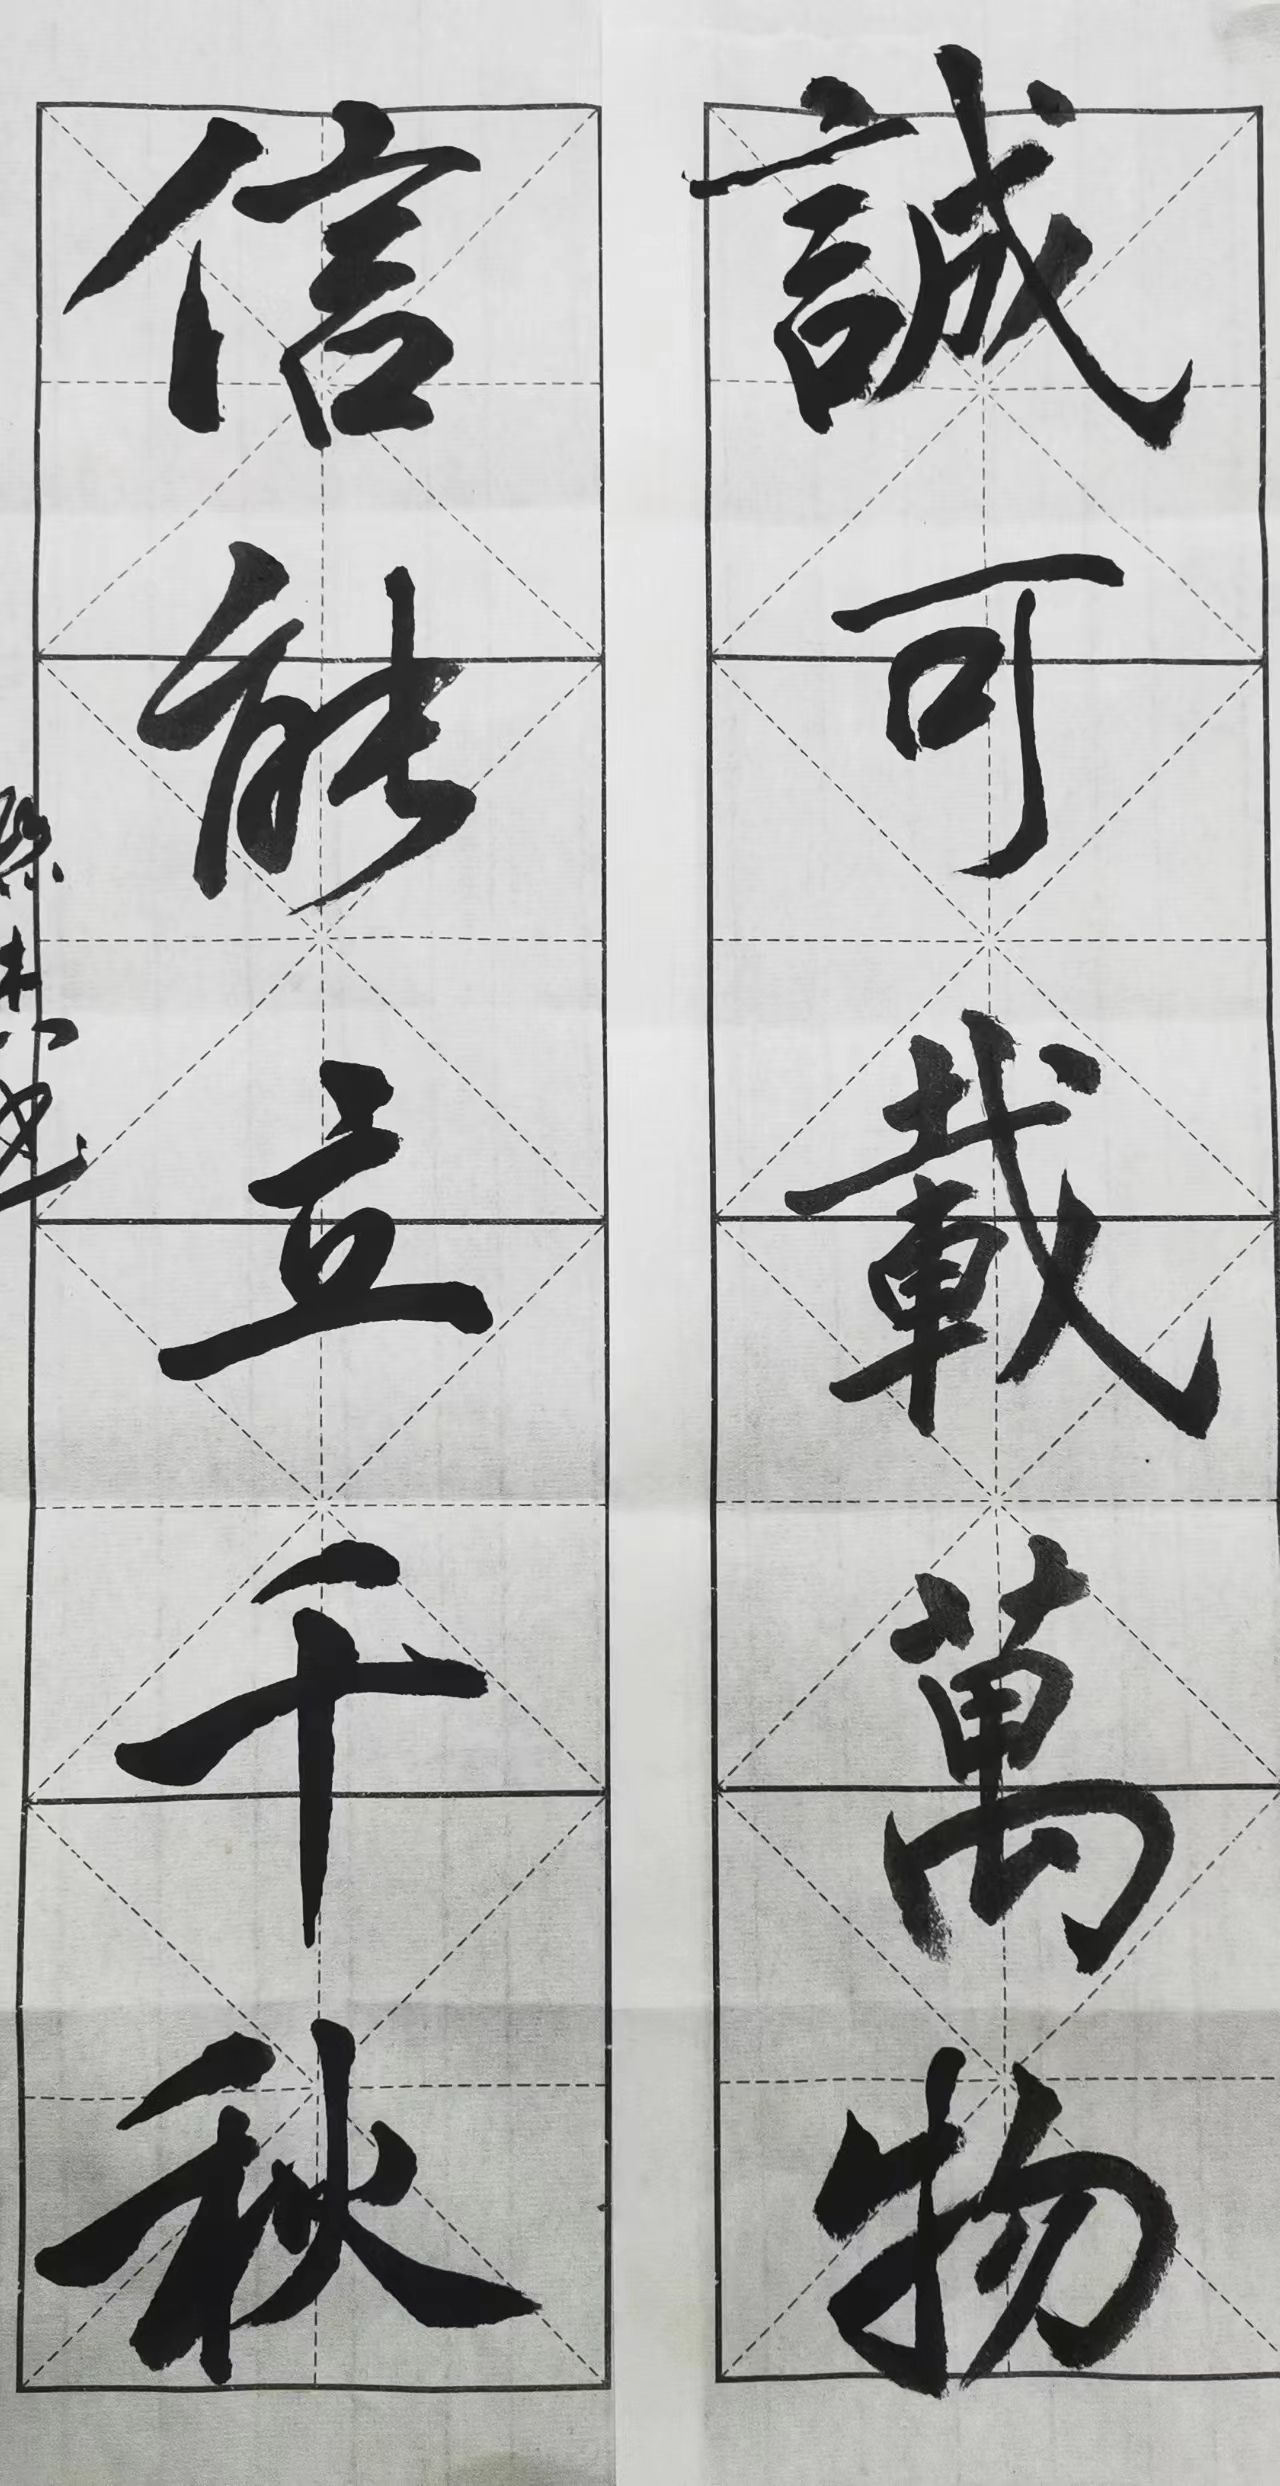 誠可載萬物
信能立千秋